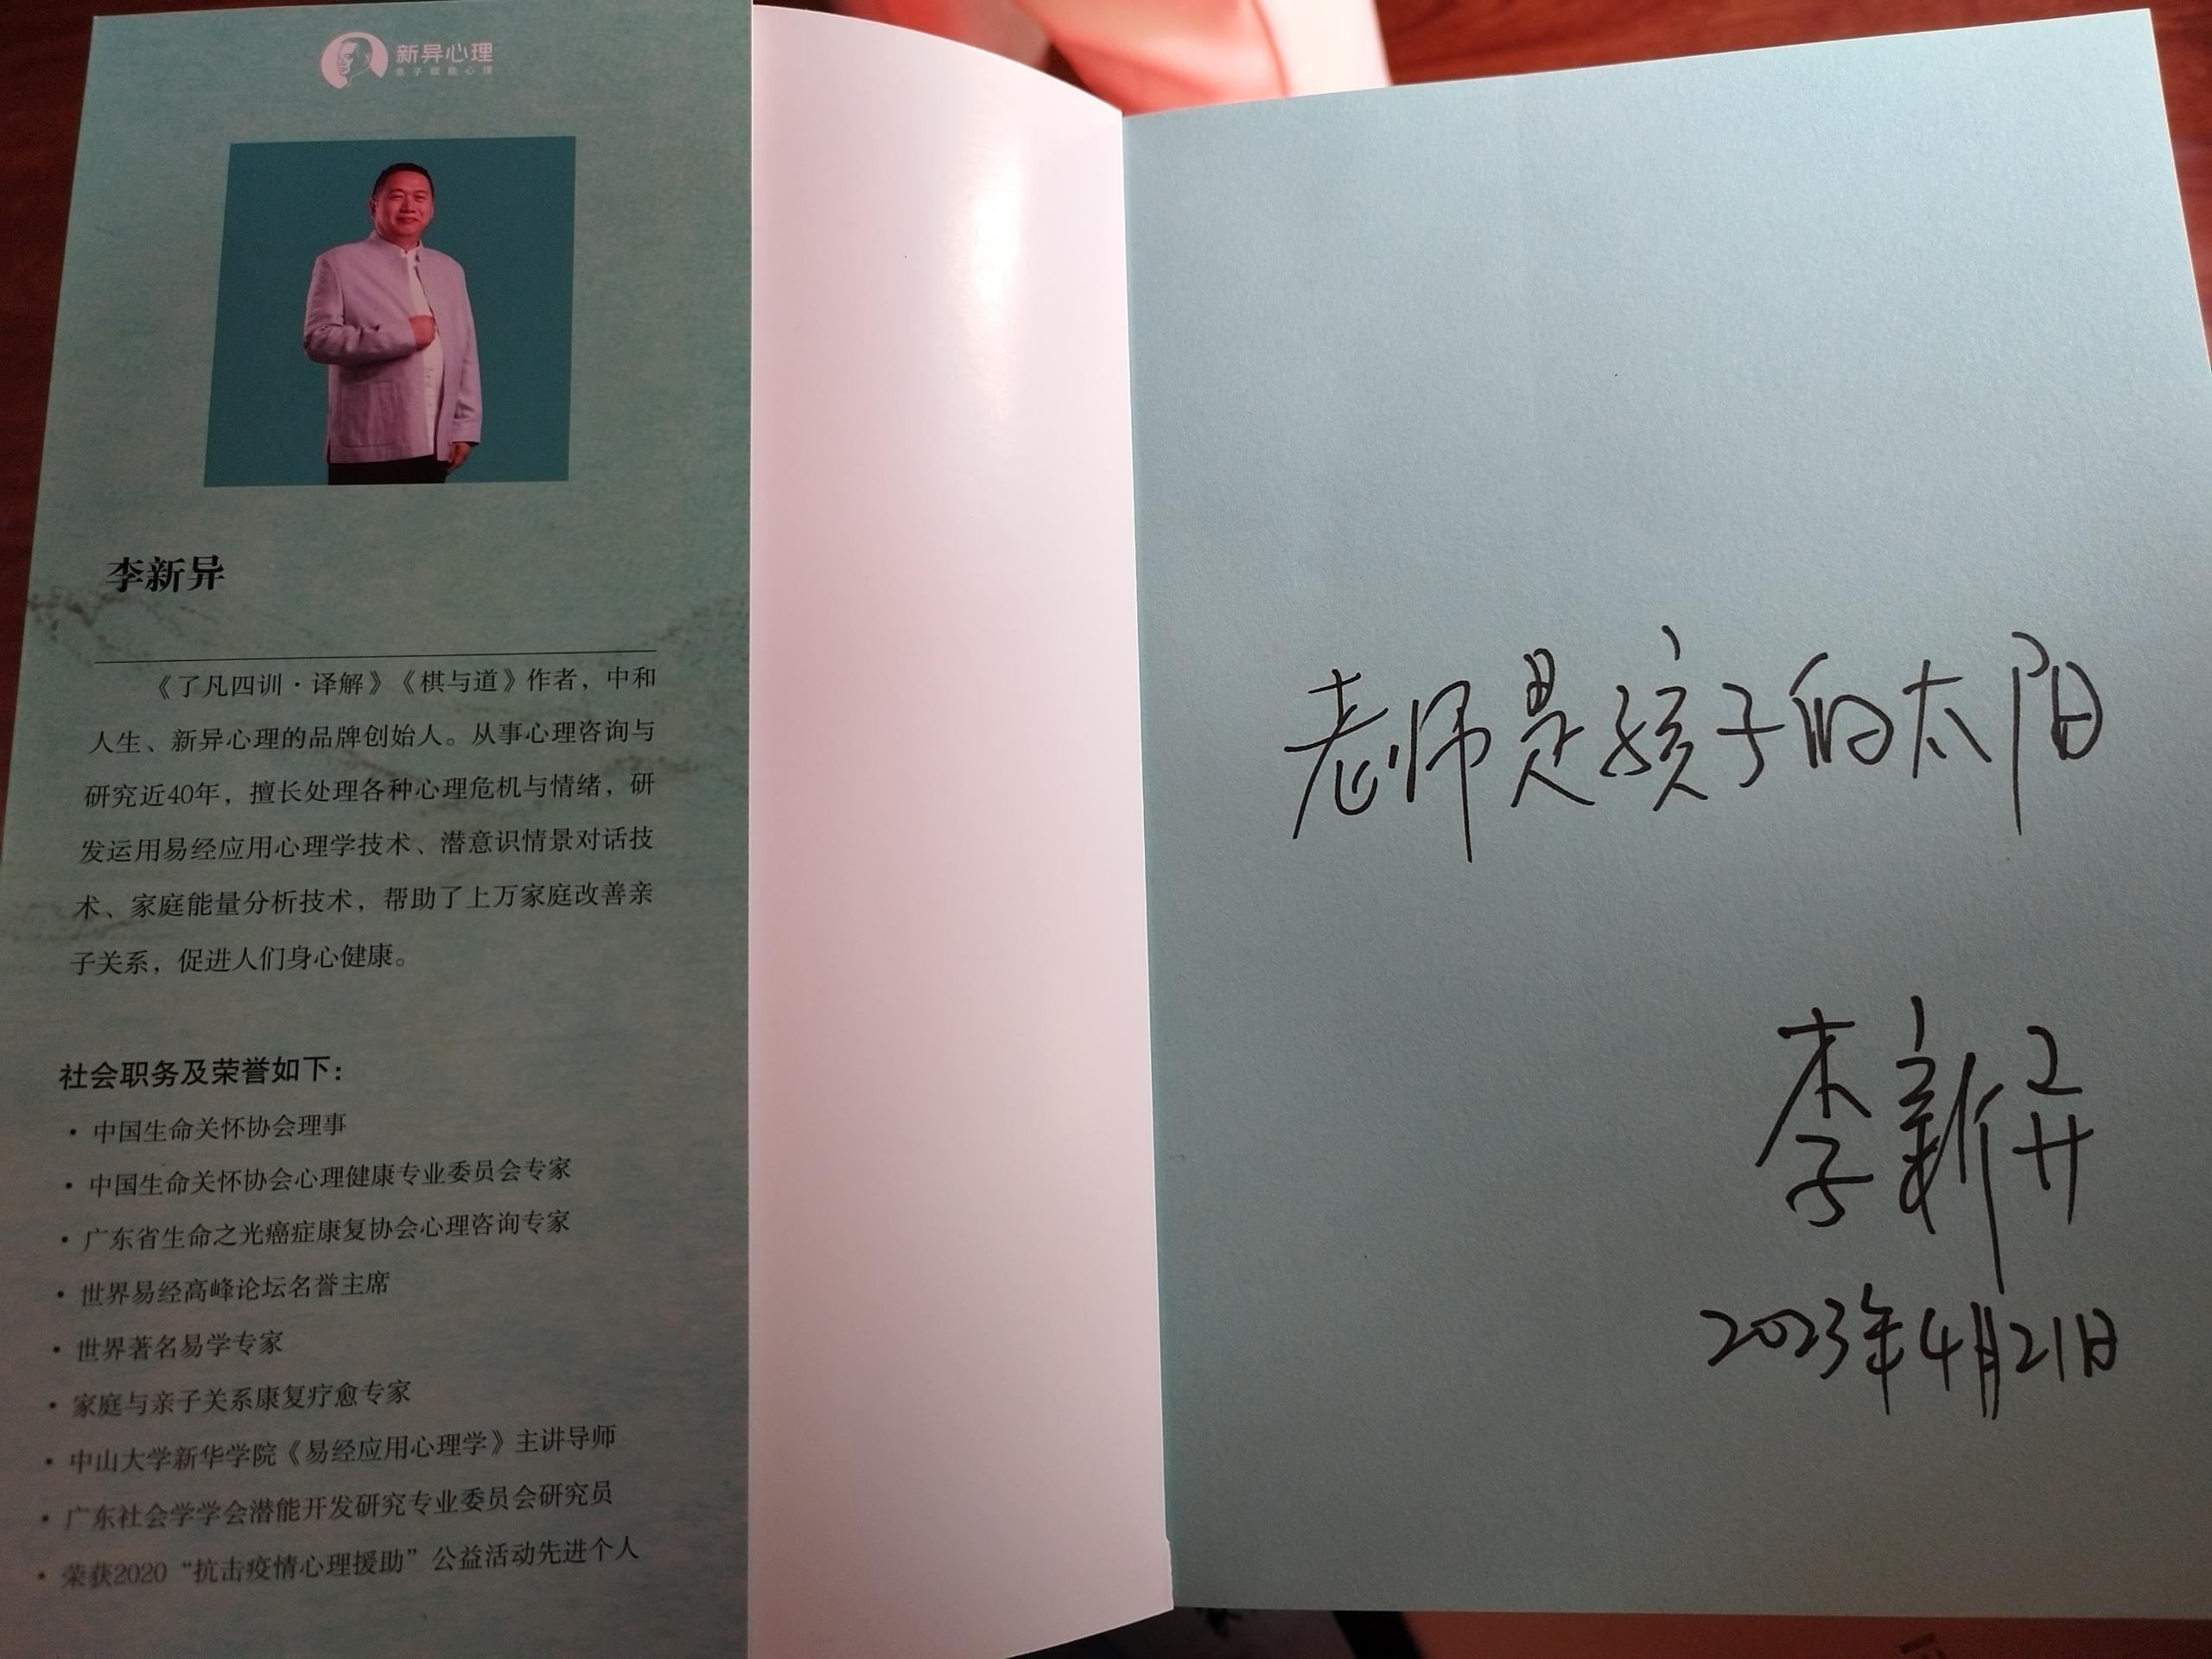 新异心理
亲子赋能心理
李新异
《了凡四训·译解》《棋与道》作者，中和
人生、新异心理的品牌创始人。从事心理咨询与
研究近40年，擅长处理各种心理危机与情绪，研
发运用易经应用心理学技术、潜意识情景对话技
术、家庭能量分析技术，帮助了上万家庭改善亲
子关系，促进人们身心健康。
社会职务及荣誉如下：
• 中国生命关怀协会理事
• 中国生命关怀协会心理健康专业委员会专家
• 广东省生命之光癌症康复协会心理咨询专家
• 世界易经高峰论坛名誉主席
• 世界著名易学专家
• 家庭与亲子关系康复疗愈专家
• 中山大学新华学院《易经应用心理学》主讲导师
• 广东社会学学会潜能开发研究专业委员会研究员
• 荣获2020“抗击疫情心理援助”公益活动先进个人
老师是孩子的太阳
李新异
2023年4月21日